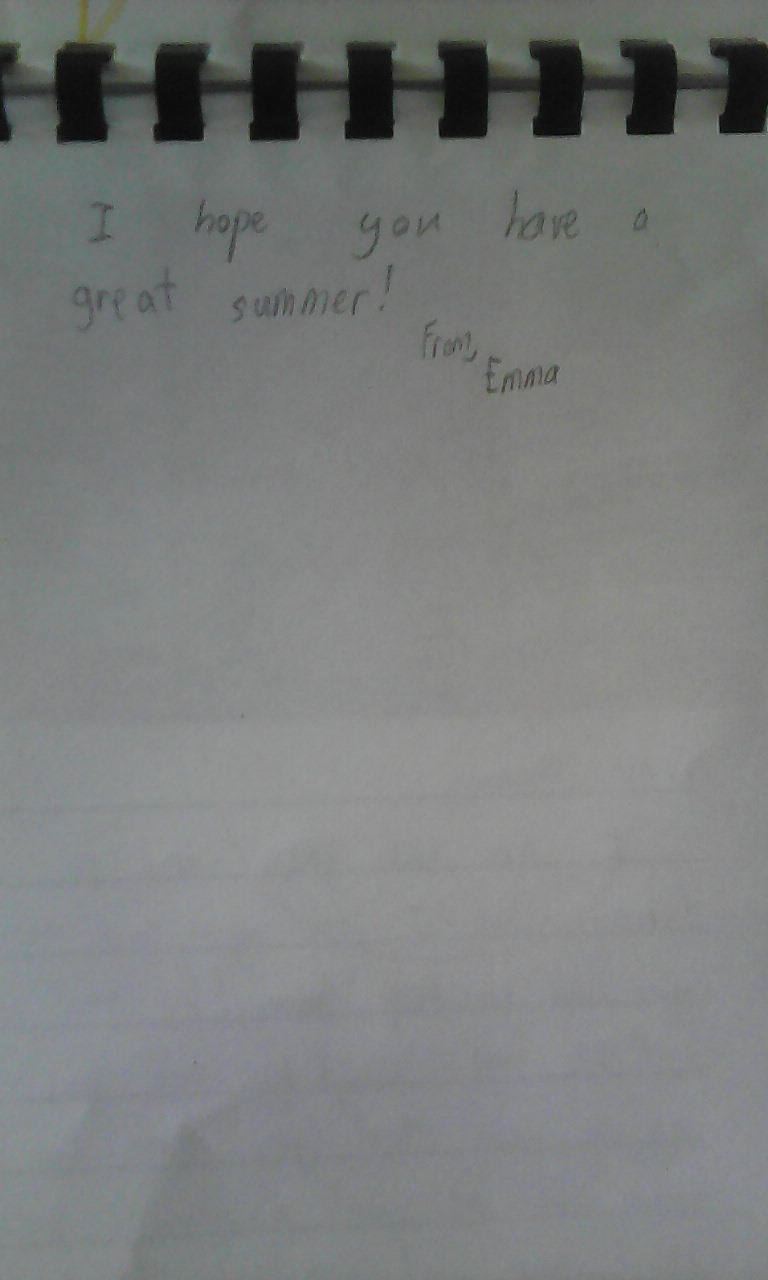 I hope you have a
great summer!
From,
Emma